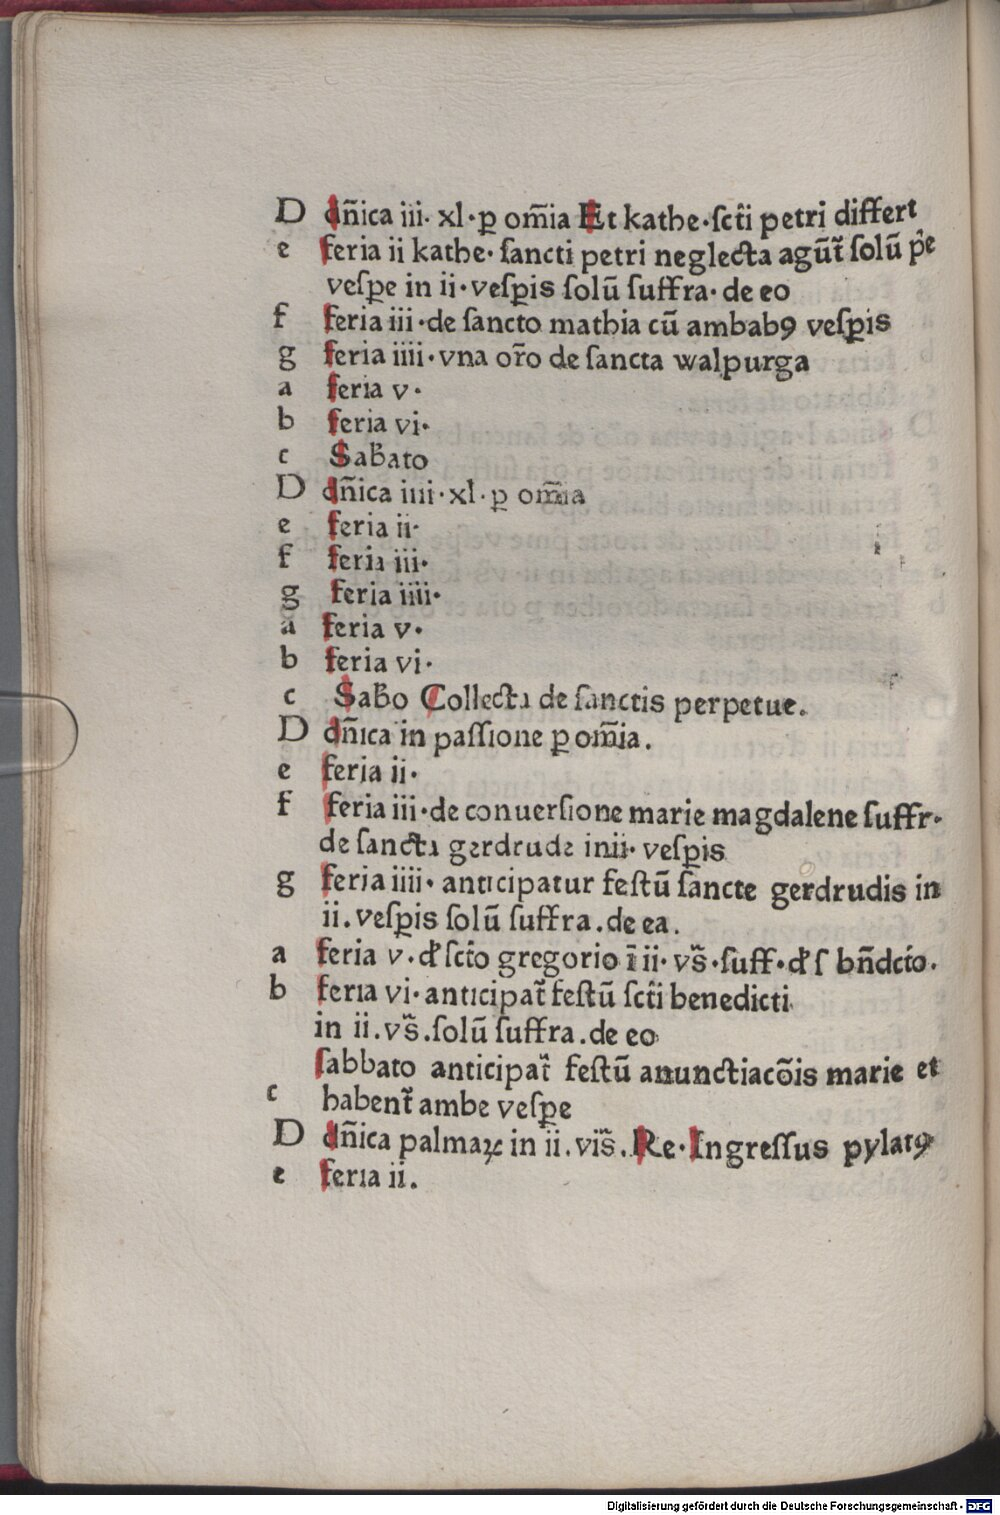 D dñica iii. xl. ꝑ om̃ia Et kathe. ſcti̇ petri differt
e feria ii kathe. ſancti petri neglecta agũt᷑ ſolũ p̃e
veſꝑe in ii. veſꝑis ſolũ ſuffra. de eo
f feria iii. de ſancto mathia cũ ambabꝰ veſꝑis
g feria iiii. vna or̃o de ſancta walpurga
a feria v.
b feria vi.
c Sabato
D dñica iiii. xl. ꝑ om̃ia
e feria ii.
f feria iii.
g feria iiii.
a feria v.
b feria vi.
c Sabo Collecta de ſanctis perpetue.
D dñica in paſſione ꝑ om̃ia.
e feria ii.
f feria iii. de conuerſione marie magdalene ſuffr.
de ſancta gerdrude inii. veſꝑis
g feria iiii. anticipatur feſtũ ſancte gerdrudis in
ii. veſꝑis ſolũ ſuffra. de ea.
a feria v. d̕ ſcto gregorio ĩ ii. vs̃. ſuff. d̕ ſ bñdcto.
b feria vi. anticipat᷑ feſtũ ſcti benedicti
in ii. vs̃. ſolũ ſuffra. de eo
ſabbato anticipat᷑ feſtũ anunctiacõis marie et
c habent᷑ ambe veſꝑe
D dñica palmaꝝ in ii. vis̃. Re. Ingreſſus pylatꝰ
e feria ii.
Digitalisierung gefördert durch die Deutsche Forschungsgemeinschaft - DFG